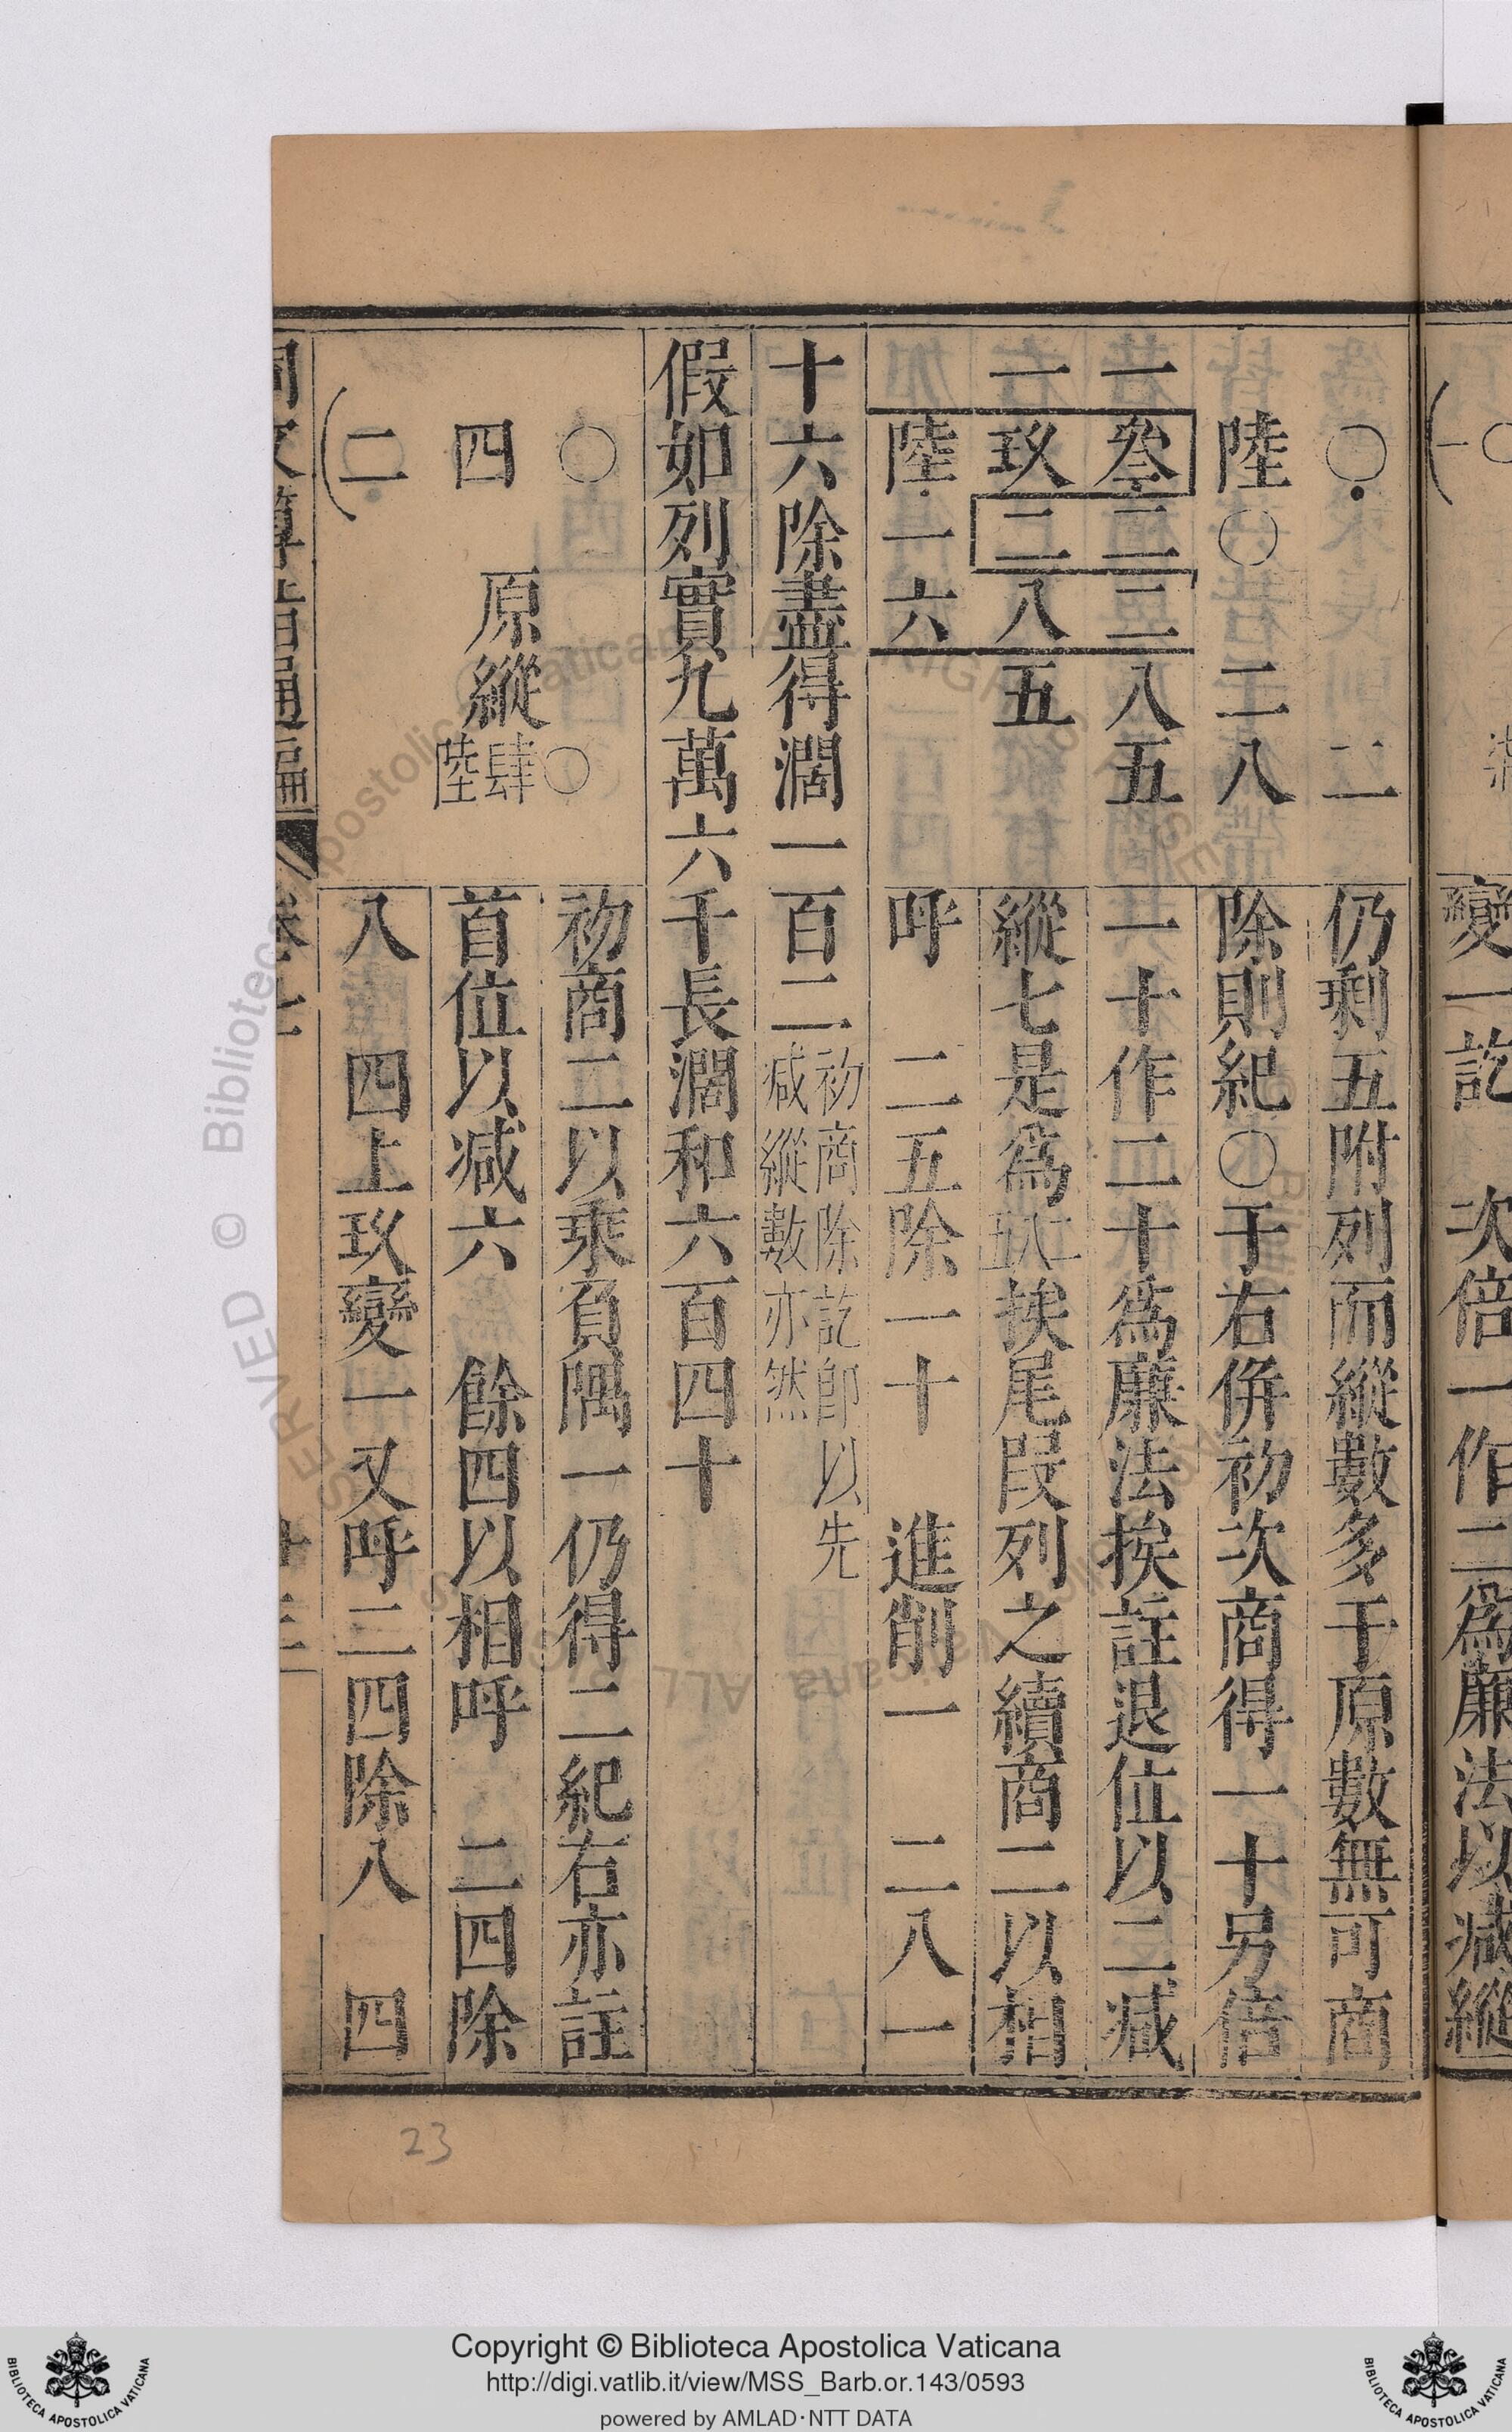 變一訖 次倍一作二爲廉法以減縱
○ 二 仍剩五附列而縱數多于原數無可商
陸○ 二八 除則紀○于右併初次商得一十另倍
一叁二三八五 一十作二十爲廉法挨註退位以二減
一玖二八五 縱七是爲五八二挨尾段列之續商二以相
陸一六 呼 二五除一十 進削一 二八一
十六除盡得濶一百二初商除訖即以先減縱數亦然
假如列實九萬六千長濶和六百四十
○ 初商二以乘負隅一仍得二紀右亦註
四 原縱○肆陸 首位以減六 餘四以相呼 二四除
二 八 四上玖變一又呼二四除八 四
同文算指通編 卷七 廿三
23
Copyright © Biblioteca Apostolica Vaticana
http://digi.vatlib.it/view/MSS_Barb.or.143/0593
powered by AMLAD·NTT DATA
BIBLIOTECA APOSTOLICA VATICANA
BIBLIOTECA APOSTOLICA VATICANA